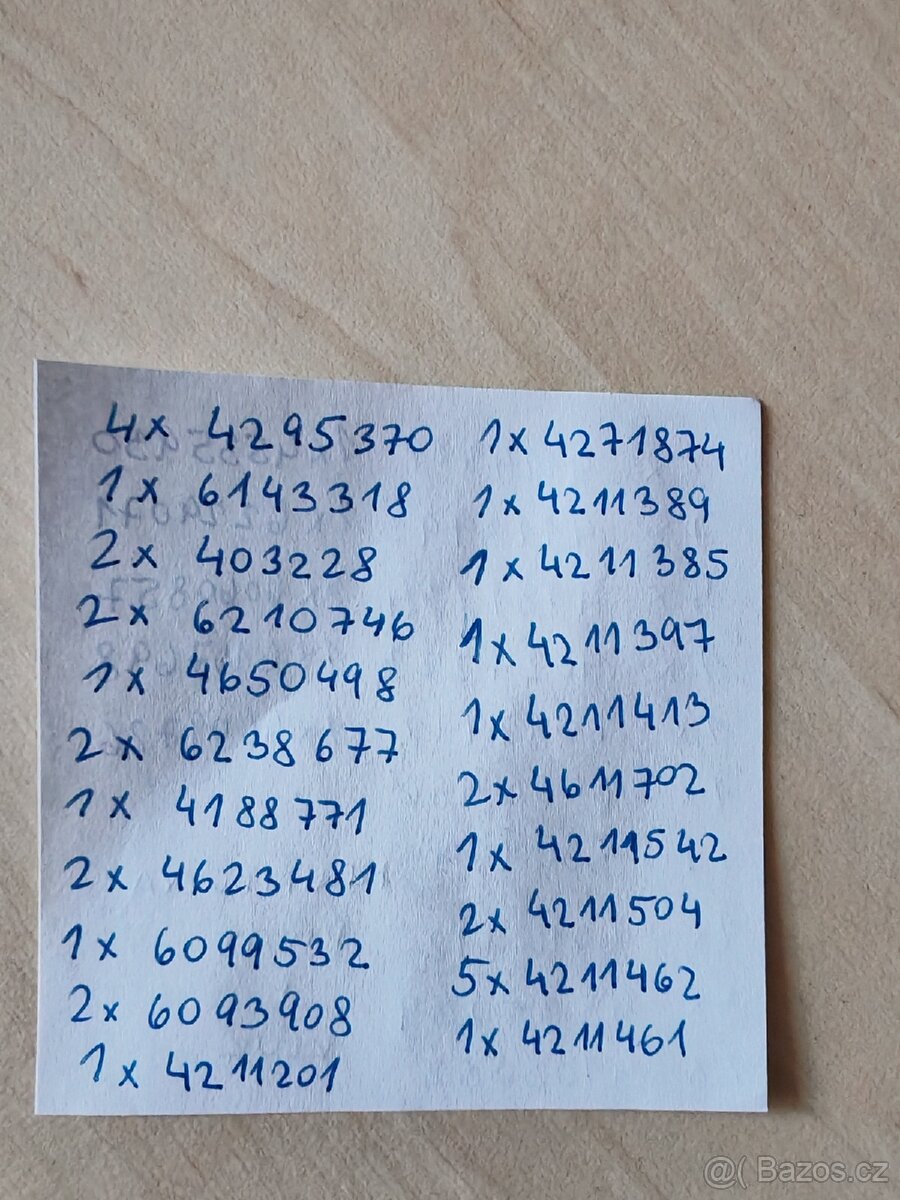 4x 4295370
1x 6143318
2x 403228
2x 6210746
1x 4650498
2x 6238677
1x 4188771
2x 4623481
1x 6099532
2x 6093908
1x 4211201
1x 4271874
1x 4211389
1x 4211385
1x 4211397
1x 4211413
2x 4611702
1x 4211542
2x 4211504
5x 4211462
1x 4211461
@( Bazos.cz